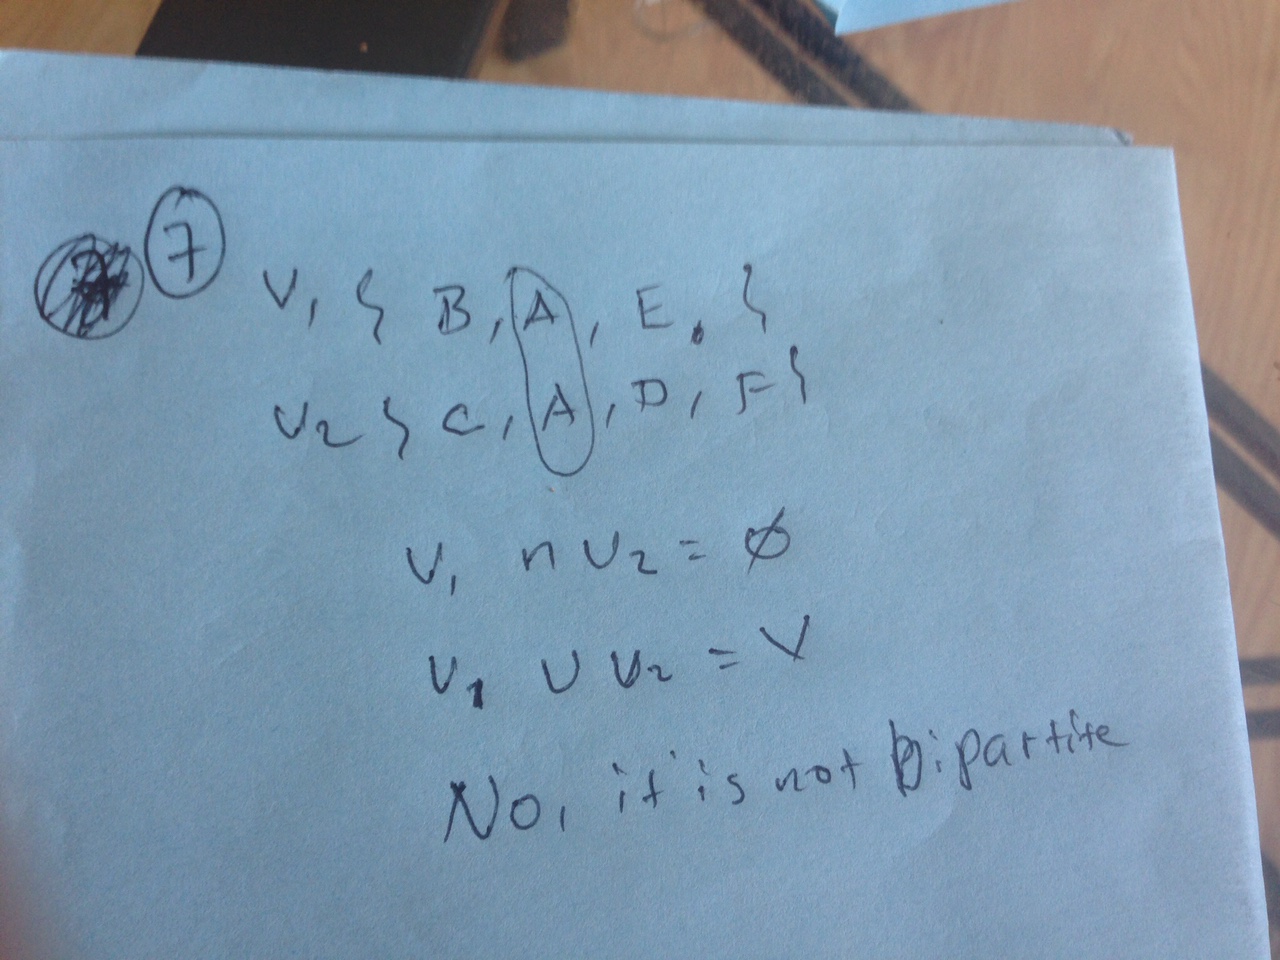 7
V1 { B, A, E, }
V2 { C, A, D, F }
V1 ∩ V2 = ∅
V1 ∪ V2 = V
No, it is not bipartite